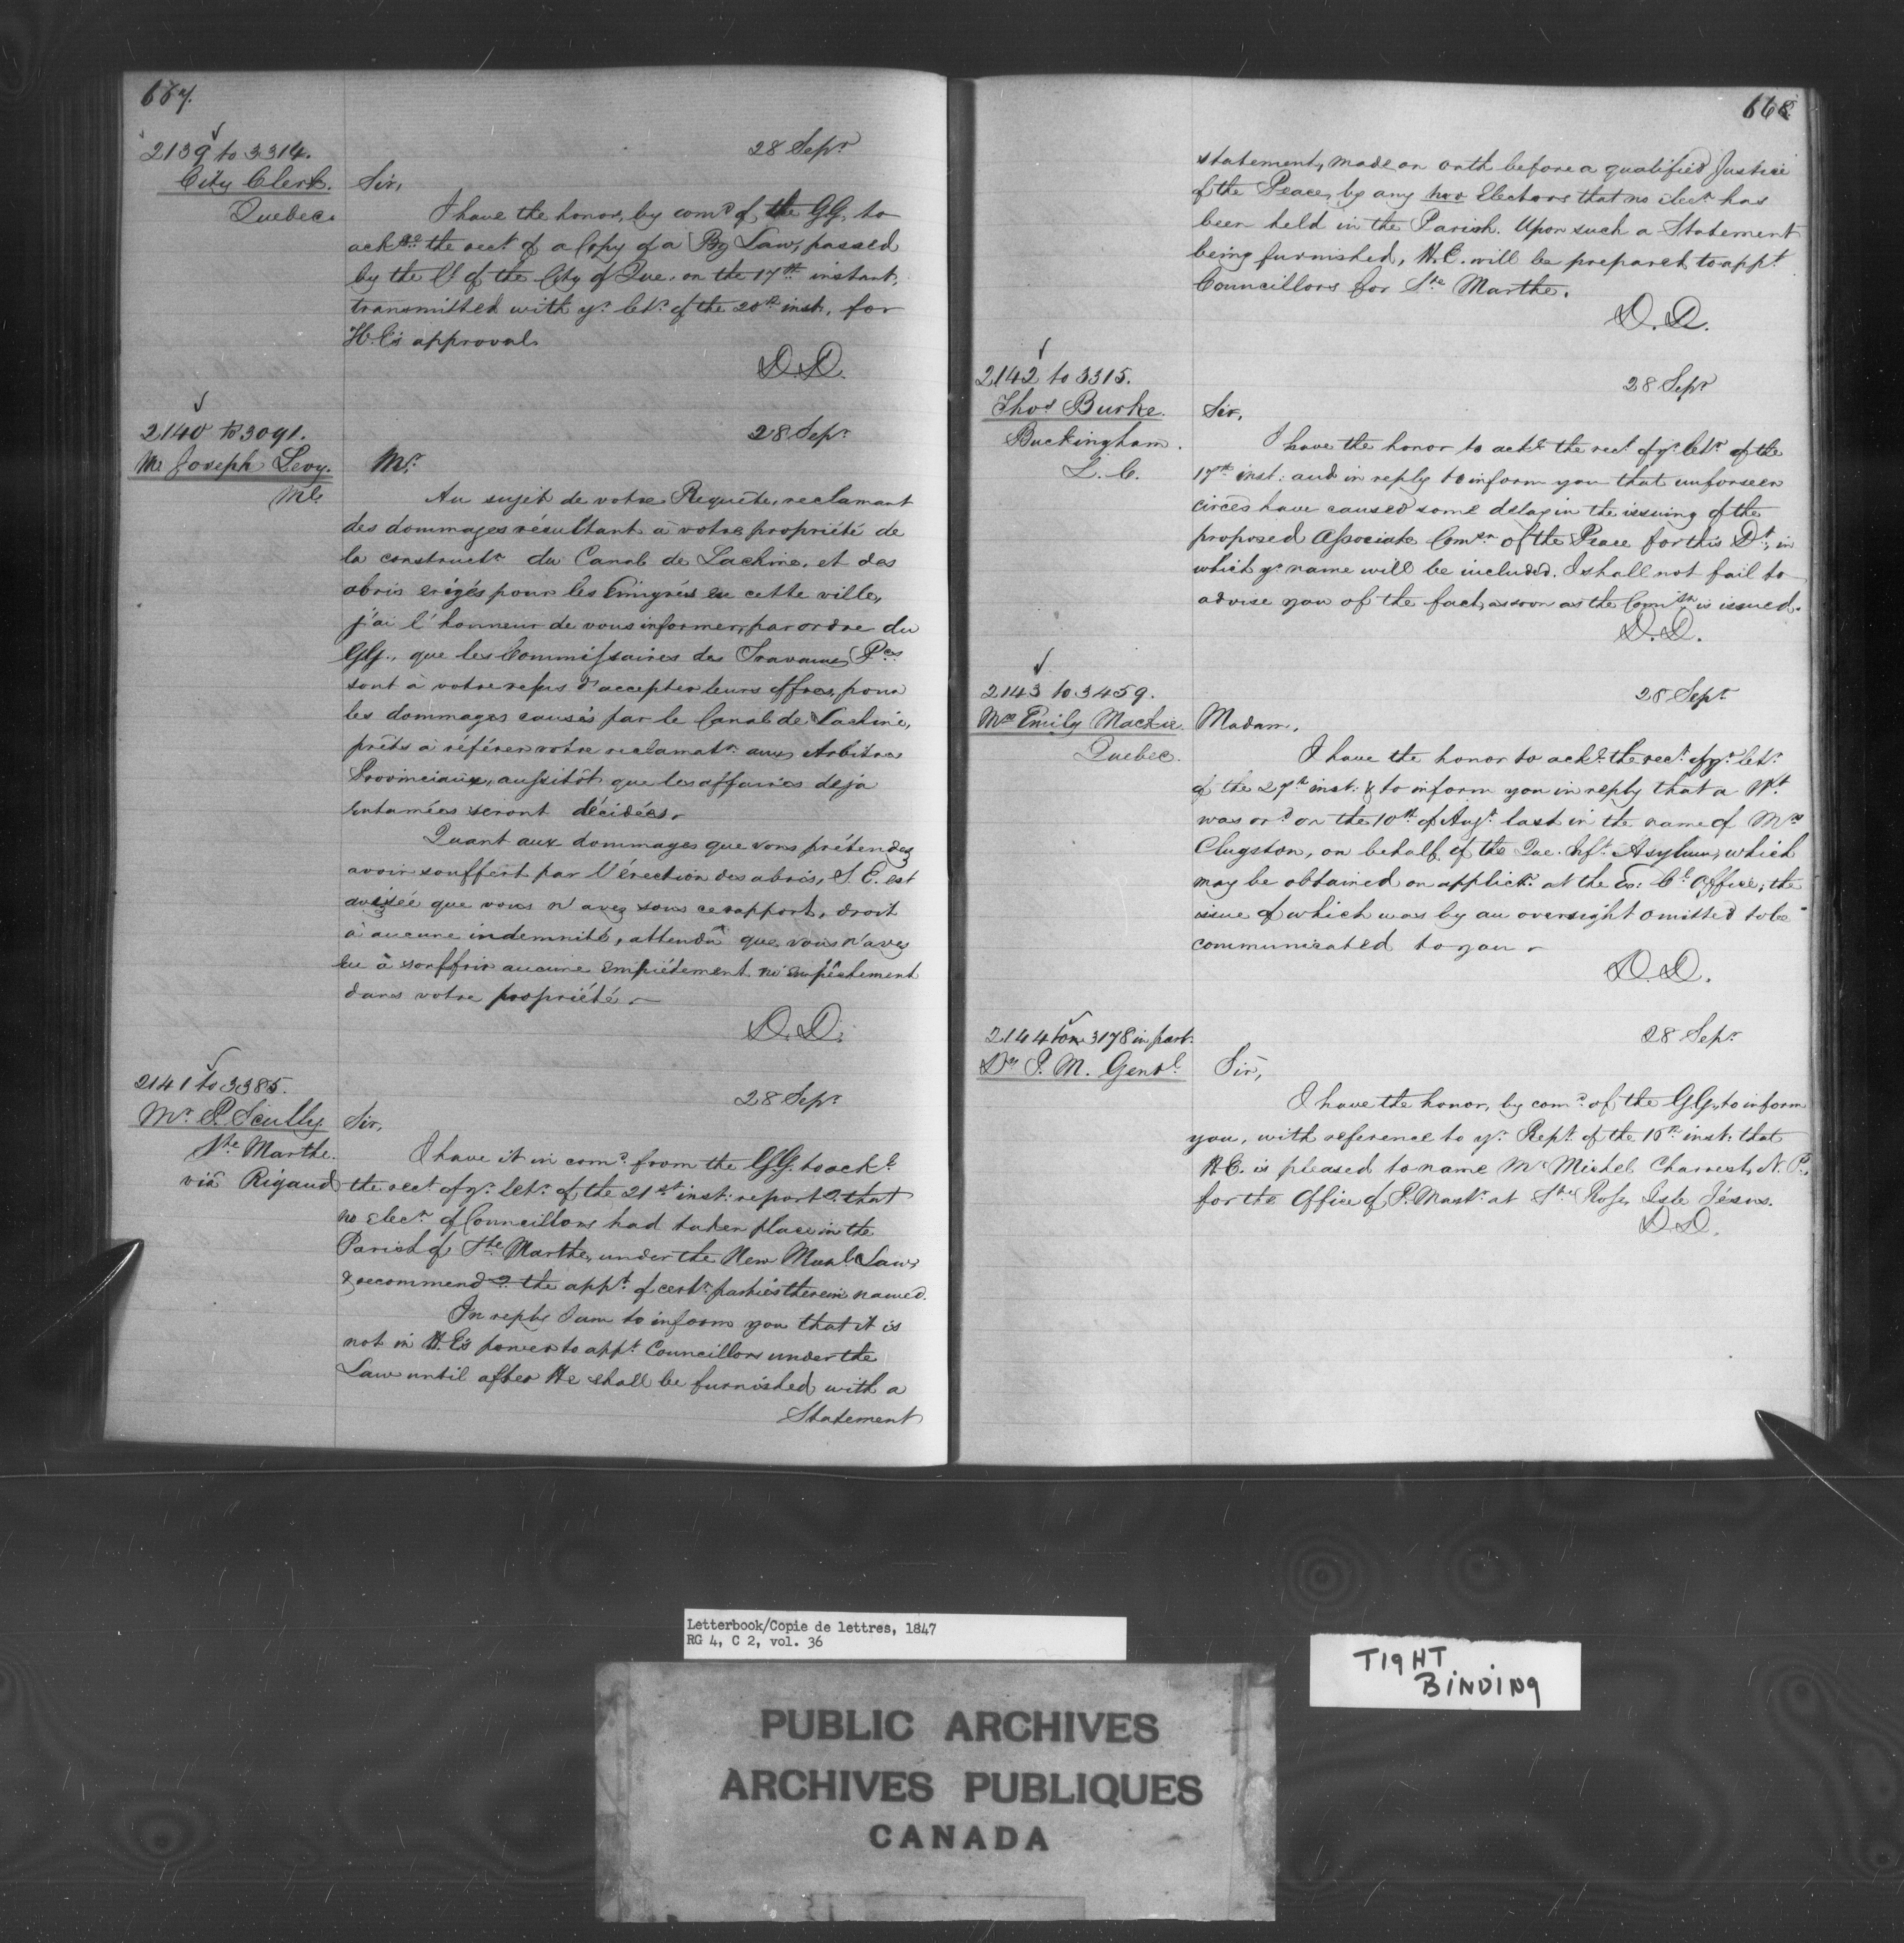 667.
2139 to 3314.
City Clerk.
Quebec.
28 Sepr
Sir,
I have the honor, by comd of the GG, to
ackge the rect of a Copy of a By Law, passed
by the Cl of the City of Que. on the 17th instant,
transmitted with yr letr of the 20th inst, for
H.E's approval.
D.D.
2140 to 3091.
Mr Joseph Levy.
Ml.
28 Sepr
Mr.
Au sujet de votre Requête, reclamant
des dommages résultant à votre propriété de
la constructn du Canal de Lachine, et des
abris erigés pour les Emigrés en cette ville,
j'ai l'honneur de vous informer, par ordre du
GG., que les Commissaires des Travaux Pcs
sont à votre refus d'accepter leurs offres, pour
les dommages causés par le Canal de Lachine,
prêts à référer votre reclamatn aux Arbitres
Provinciaux, aussitôt que les affaires deja
entamées seront décidées.
Quant aux dommages que vous prétendez
avoir souffert par l'érection des abris, S.E. est
avisée que vous n'avez sous ce rapport, droit
à aucune indemnité, attendu que vous n'avez
eu à souffrir aucune empiétement ni empêchement
dans votre propriété.
D.D.
2141 to 3385.
Mr P. Scully
Ste Marthe.
viâ Rigaud
28 Sepr
Sir,
I have it in comd from the GG. to ackl
the rect of yr letr of the 21st inst: reportg that
no Elecn of Councillors had taken place in the
Parish of Ste Marthe, under the New Munl Law,
& recommendg the appt of certn parties therein named.
In reply I am to inform you that it is
not in H.E's power to appt Councillors under the
Law until after He shall be furnished with a
Statement
668.
statement, made on oath before a qualified Justice
of the Peace, by any two Electors that no elecn has
been held in the Parish. Upon such a Statement
being furnished, H.E. will be prepared to appt
Councillors for Ste Marthe.
D.D.
2142 to 3315.
Thos Burke.
Buckingham.
L.C.
28 Sepr
Sir,
I have the honor to ackl the rect of yr letr of the
17th inst: and in reply to inform you that unforseen
circes have caused some delay in the issuing of the
proposed Associate Comsn of the Peace for this Dt, in
which yr name will be included. I shall not fail to
advise you of the fact, as soon as the Comisn is issued.
D.D.
2143 to 3459.
Mrs Emily Mackie.
Quebec.
28 Sepr
Madam,
I have the honor to ackl the rect of yr letr
of the 27th inst: & to inform you in reply that a Wt
was ord on the 10th of Augt last in the name of Mrs
Clugston, on behalf of the Que. Inft Asylum, which
may be obtained on applicn at the Ex: Cl Office; the
issue of which was by an oversight omitted to be
communicated to you.
D.D.
2144 to 3178 in part.
Dy P.M. Genrl.
28 Sepr
Sir,
I have the honor, by comd of the GG, to inform
you, with reference to yr Rept of the 16th inst: that
H.E. is pleased to name Mr Michel Charrest, N.P.,
for the Office of P. Mastr at Ste Rose, Isle Jésus.
D.D.
Letterbook/Copie de lettres, 1847
RG 4, C 2, vol. 36
TIGHT
BINDING
PUBLIC ARCHIVES
ARCHIVES PUBLIQUES
CANADA